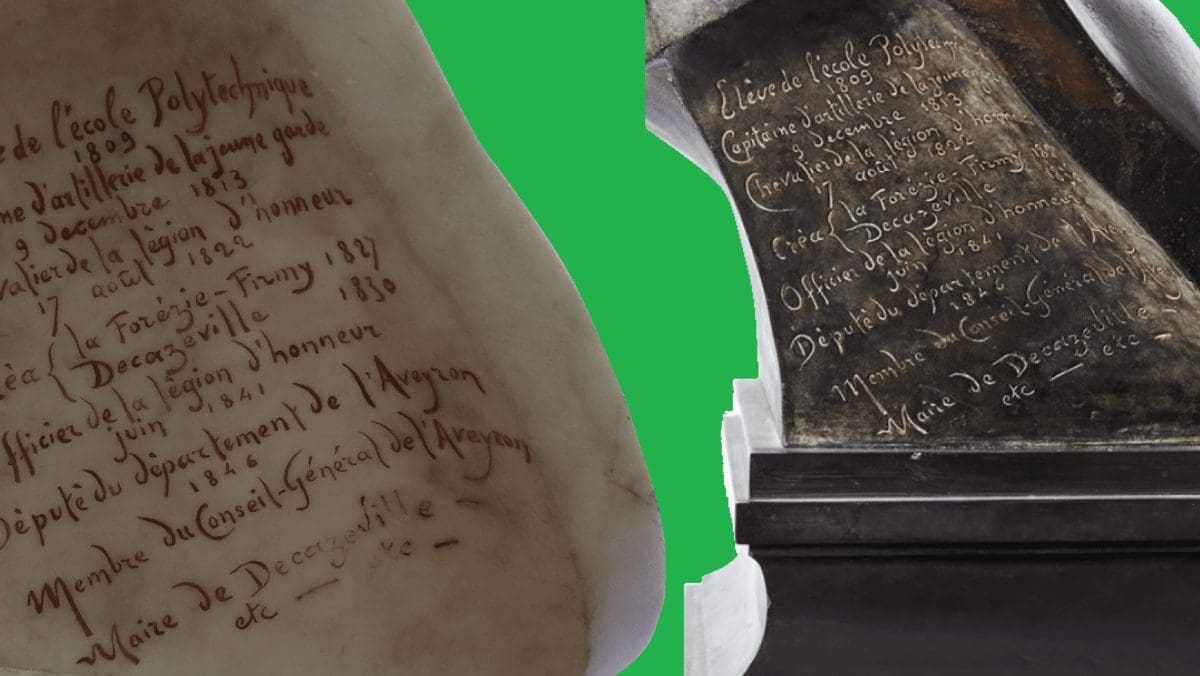 e de l'école Polytechnique
1809
me d'artillerie de la jeune garde
9 decembre 1813
valier de la lègion d'honneur
17 août 1822
èa { la Forézie - Firmy 1827
Decazeville 1830
fficier de la lègion d'honneur
juin 1841
Dèputè du dèpartement de l'Aveyron
1846
Membre du Conseil-Général de l'Aveyron
Maire de Decazeville —
etc — etc —
Elève de l'école Polytechn
1809
Capitaine d'artillerie de la jeune
9 decembre 1813
Chevalier de la lègion d'honne
17 août 1822
Crèa { la Forèzie - Firmy 182
Decazeville
Officier de la lègion d'honneur
juin 1841
Dèputè du dèpartement de l'Ave
1846
Membre du Conseil-Général de l'Avey
Maire de Decazeville —
etc — etc —